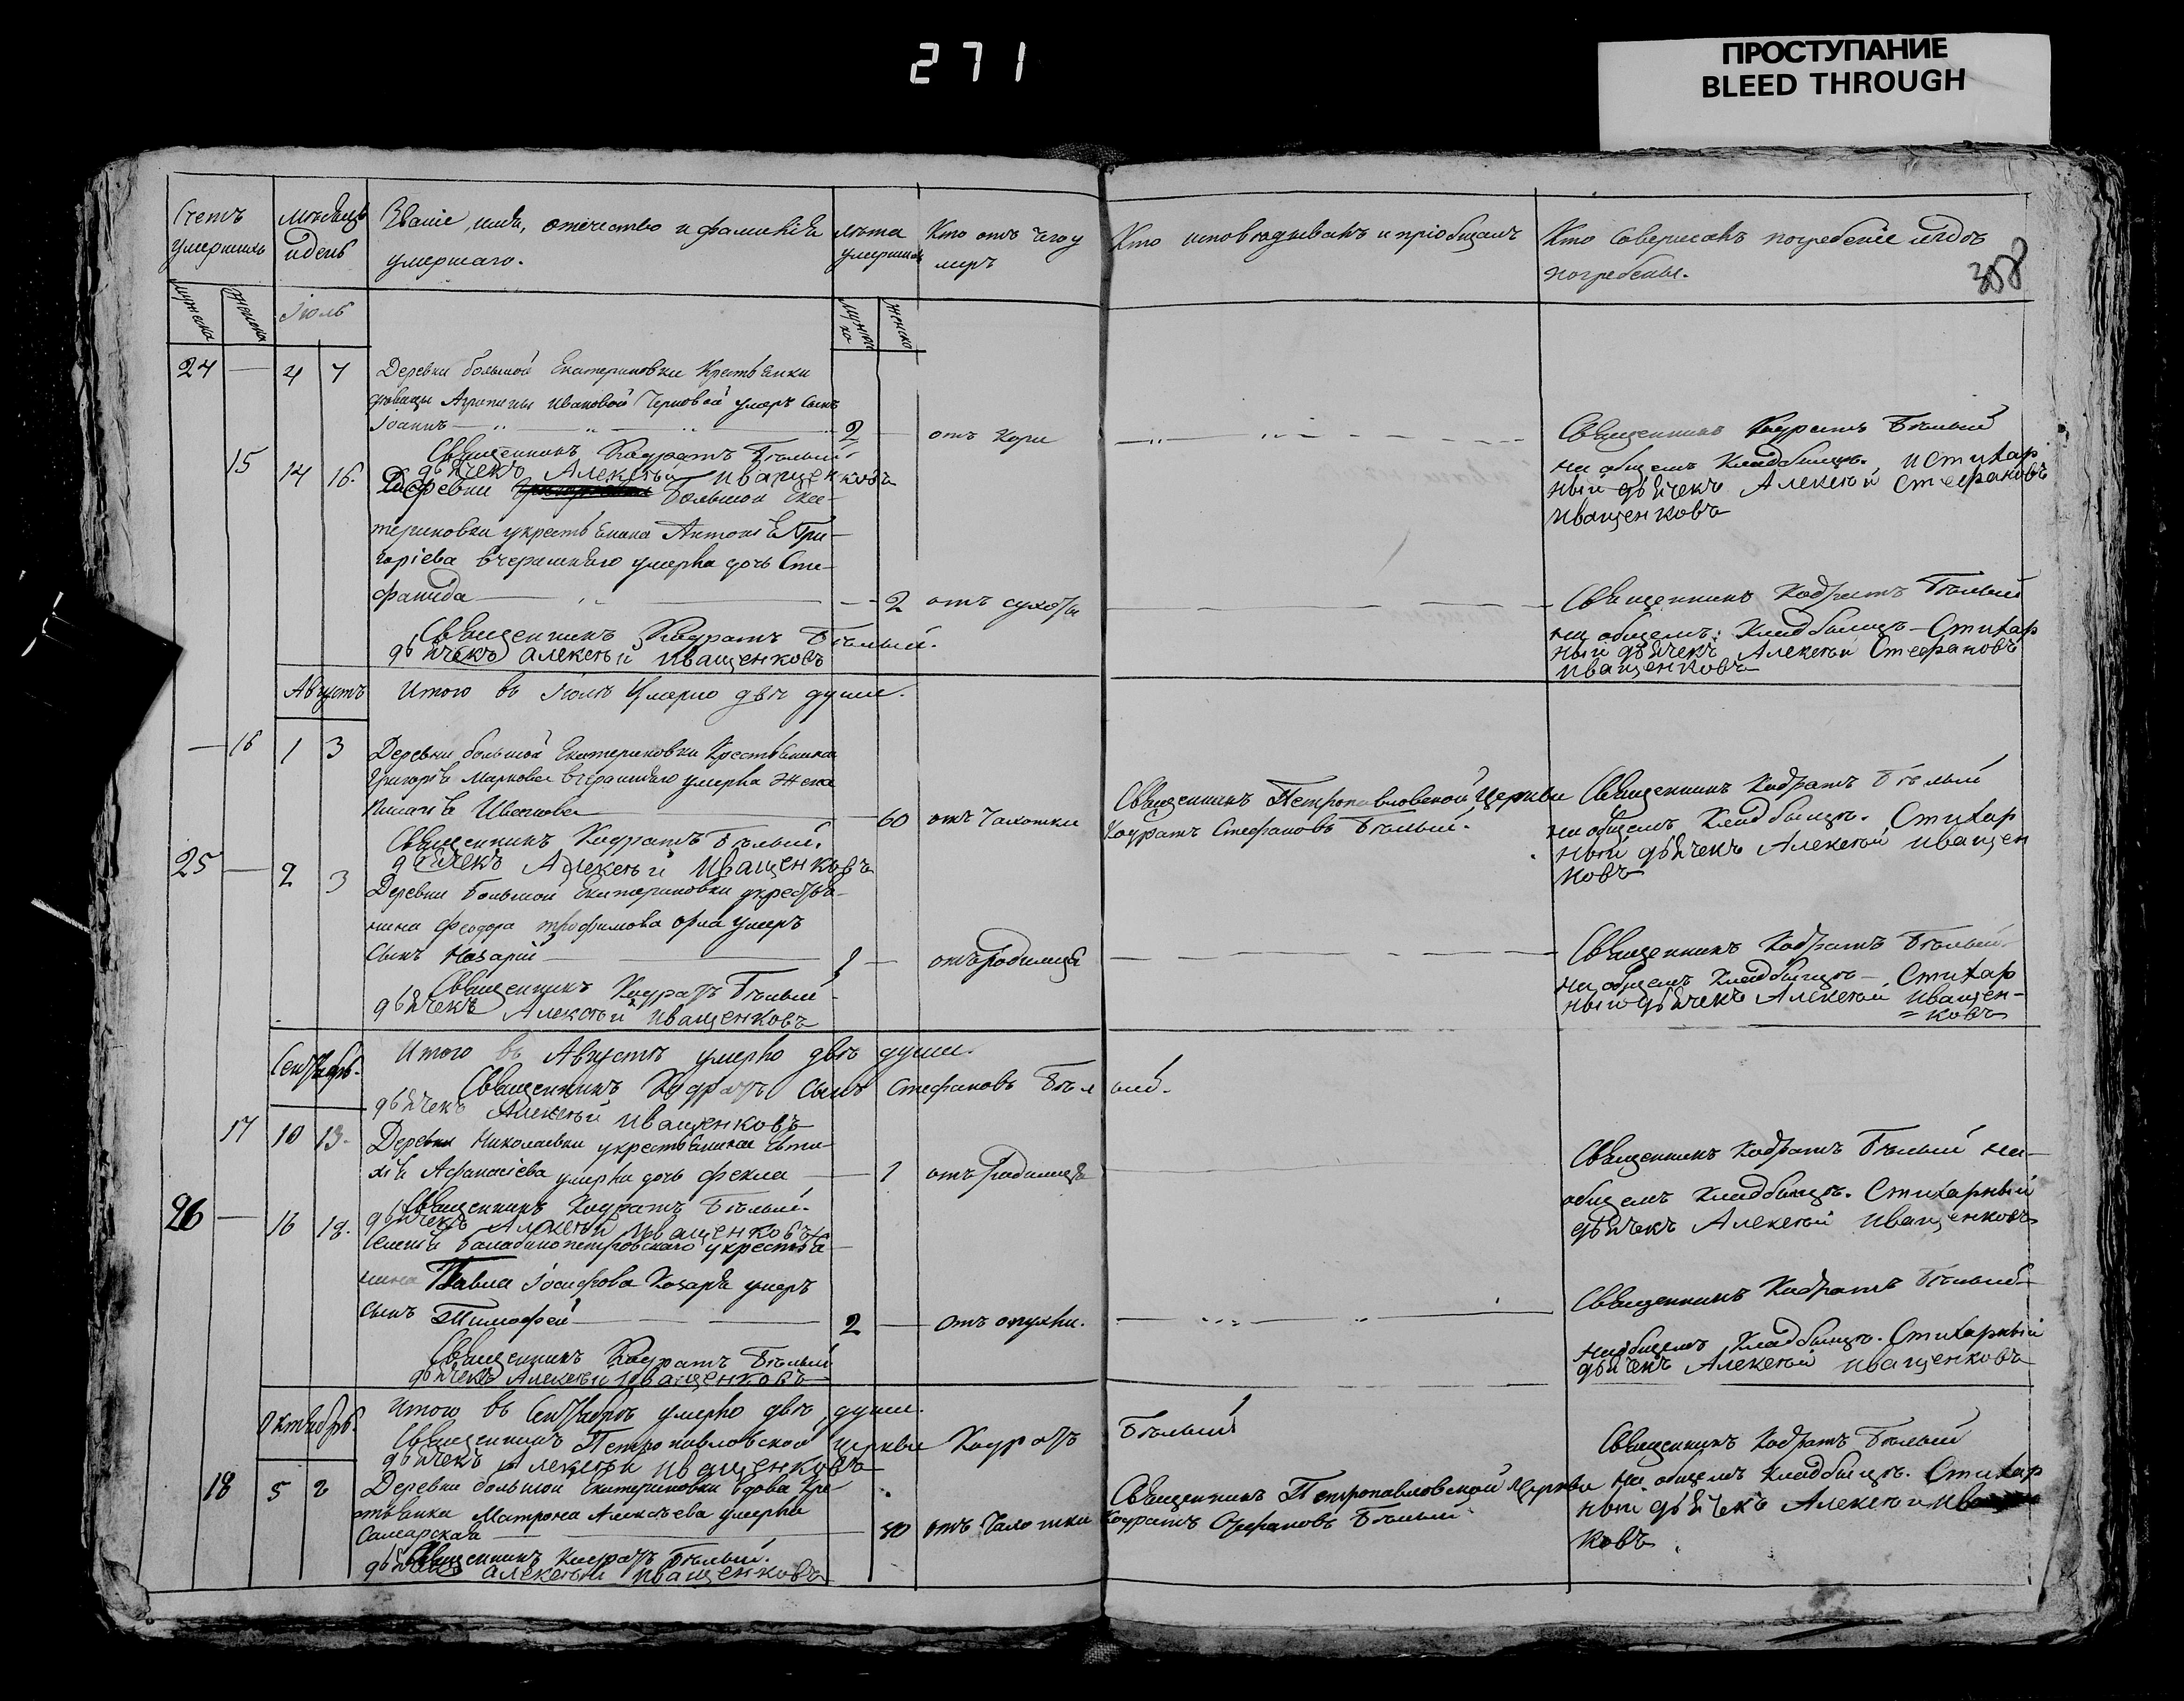 271
ПРОСТУПАНИЕ
BLEED THROUGH
Счетъ умершихъ
мѣсяцъ и день
Званіе, имя, отчество и фамилія умершаго.
лѣта умершихъ
Кто отъ чего умеръ
Кто исповѣдывалъ и пріобщалъ
Кто совершалъ погребеніе и гдѣ погребены.
358
Мужеска
Женска
Іюль
Мужеска
Женска
24 — 4 7
Деревни большой Екатериновки Крестьянки
Агрипины Ивановой Черновой умеръ сынъ
Іоаннъ
2
отъ Кори
Священникъ Кодратъ Бѣлый
на общемъ Кладбищѣ. и Стихар
ный дьячекъ Алексѣй Стефановъ
Иващенковъ
Священникъ Кодратъ Бѣлый
дьячекъ Алексѣй Иващенковъ
15 14 16.
Деревни Большой Ека-
териновки у крестьянина Антонія Гри-
горіева Вчерашняго умерла дочь Сте-
фанида
2 отъ сухоты
Священникъ Кодратъ Бѣлый
на общемъ Кладбищѣ Стихар
ный дьячекъ Алексѣй Стефановъ
Иващенковъ
Священникъ Кодратъ Бѣлый.
дьячекъ Алексѣй Иващенковъ
Августъ
Итого въ Іюлѣ умерло двѣ души.
— 16 1 3
Деревни большой Екатериновки Крестьянина
Григорія Маркова Вчерашняго умерла жена
Иванова
60 отъ Чахотки
Священникъ Петропавловской Церкви
Кодратъ Стефановъ Бѣлый.
Священникъ Кодратъ Бѣлый
на общемъ Кладбищѣ. Стихар
ный дьячекъ Алексѣй Иващен
ковъ
Священникъ Кодратъ Бѣлый.
дьячекъ Алексѣй Иващенковъ
25 — 2 3
Деревни Большой Екатериновки у крестья-
нина Феодора Трофимова Орла умеръ
сынъ Назарій
1 — отъ Родимца
Священникъ Кодратъ Бѣлый
на общемъ Кладбищѣ — Стихар
ный дьячекъ Алексѣй Иващен-
ковъ
Священникъ Кодратъ Бѣлый
дьячекъ Алексѣй Иващенковъ
Сентябрь.
Итого въ Августѣ умерло двѣ души.
Священникъ Кодратъ сынъ Стефановъ Бѣлый.
дьячекъ Алексѣй Иващенковъ
17 10 13.
Деревни Николаевки у крестьянина Евти-
хія Афанасіева умерла дочь Фекла
1 отъ Родимца
Священникъ Кодратъ Бѣлый на
общемъ Кладбищѣ. Стихарный
дьячекъ Алексѣй Иващенковъ
Священникъ Кодратъ Бѣлый.
дьячекъ Алексѣй Иващенковъ
26 — 16 18.
Селенія Балабинопетровскаго у крестья-
нина Павла Іосифова Козаря умеръ
сынъ Тимофей
2 — Отъ опухни.
Священникъ Кодратъ Бѣлый
на общемъ Кладбищѣ. Стихарный
дьячекъ Алексѣй Иващенковъ
Священникъ Кодратъ Бѣлый
дьячекъ Алексѣй Иващенковъ
Октябрь.
Итого въ Сентябрѣ умерло двѣ души.
Священникъ Петропавловской Церкви Кодратъ Бѣлый
дьячекъ Алексѣй Иващенковъ
18 5 2
Деревни большой Екатериновки вдова Кре-
стьянка Матрона Алексѣева умерла
Самарская
50 отъ Чахотки
Священникъ Петропавловской Церкви
Кодратъ Стефановъ Бѣлый
Священникъ Кодратъ Бѣлый
на общемъ Кладбищѣ. Стихар
ный дьячекъ Алексѣй
ковъ
Священникъ Кодратъ Бѣлый.
дьячекъ Алексѣй Иващенковъ